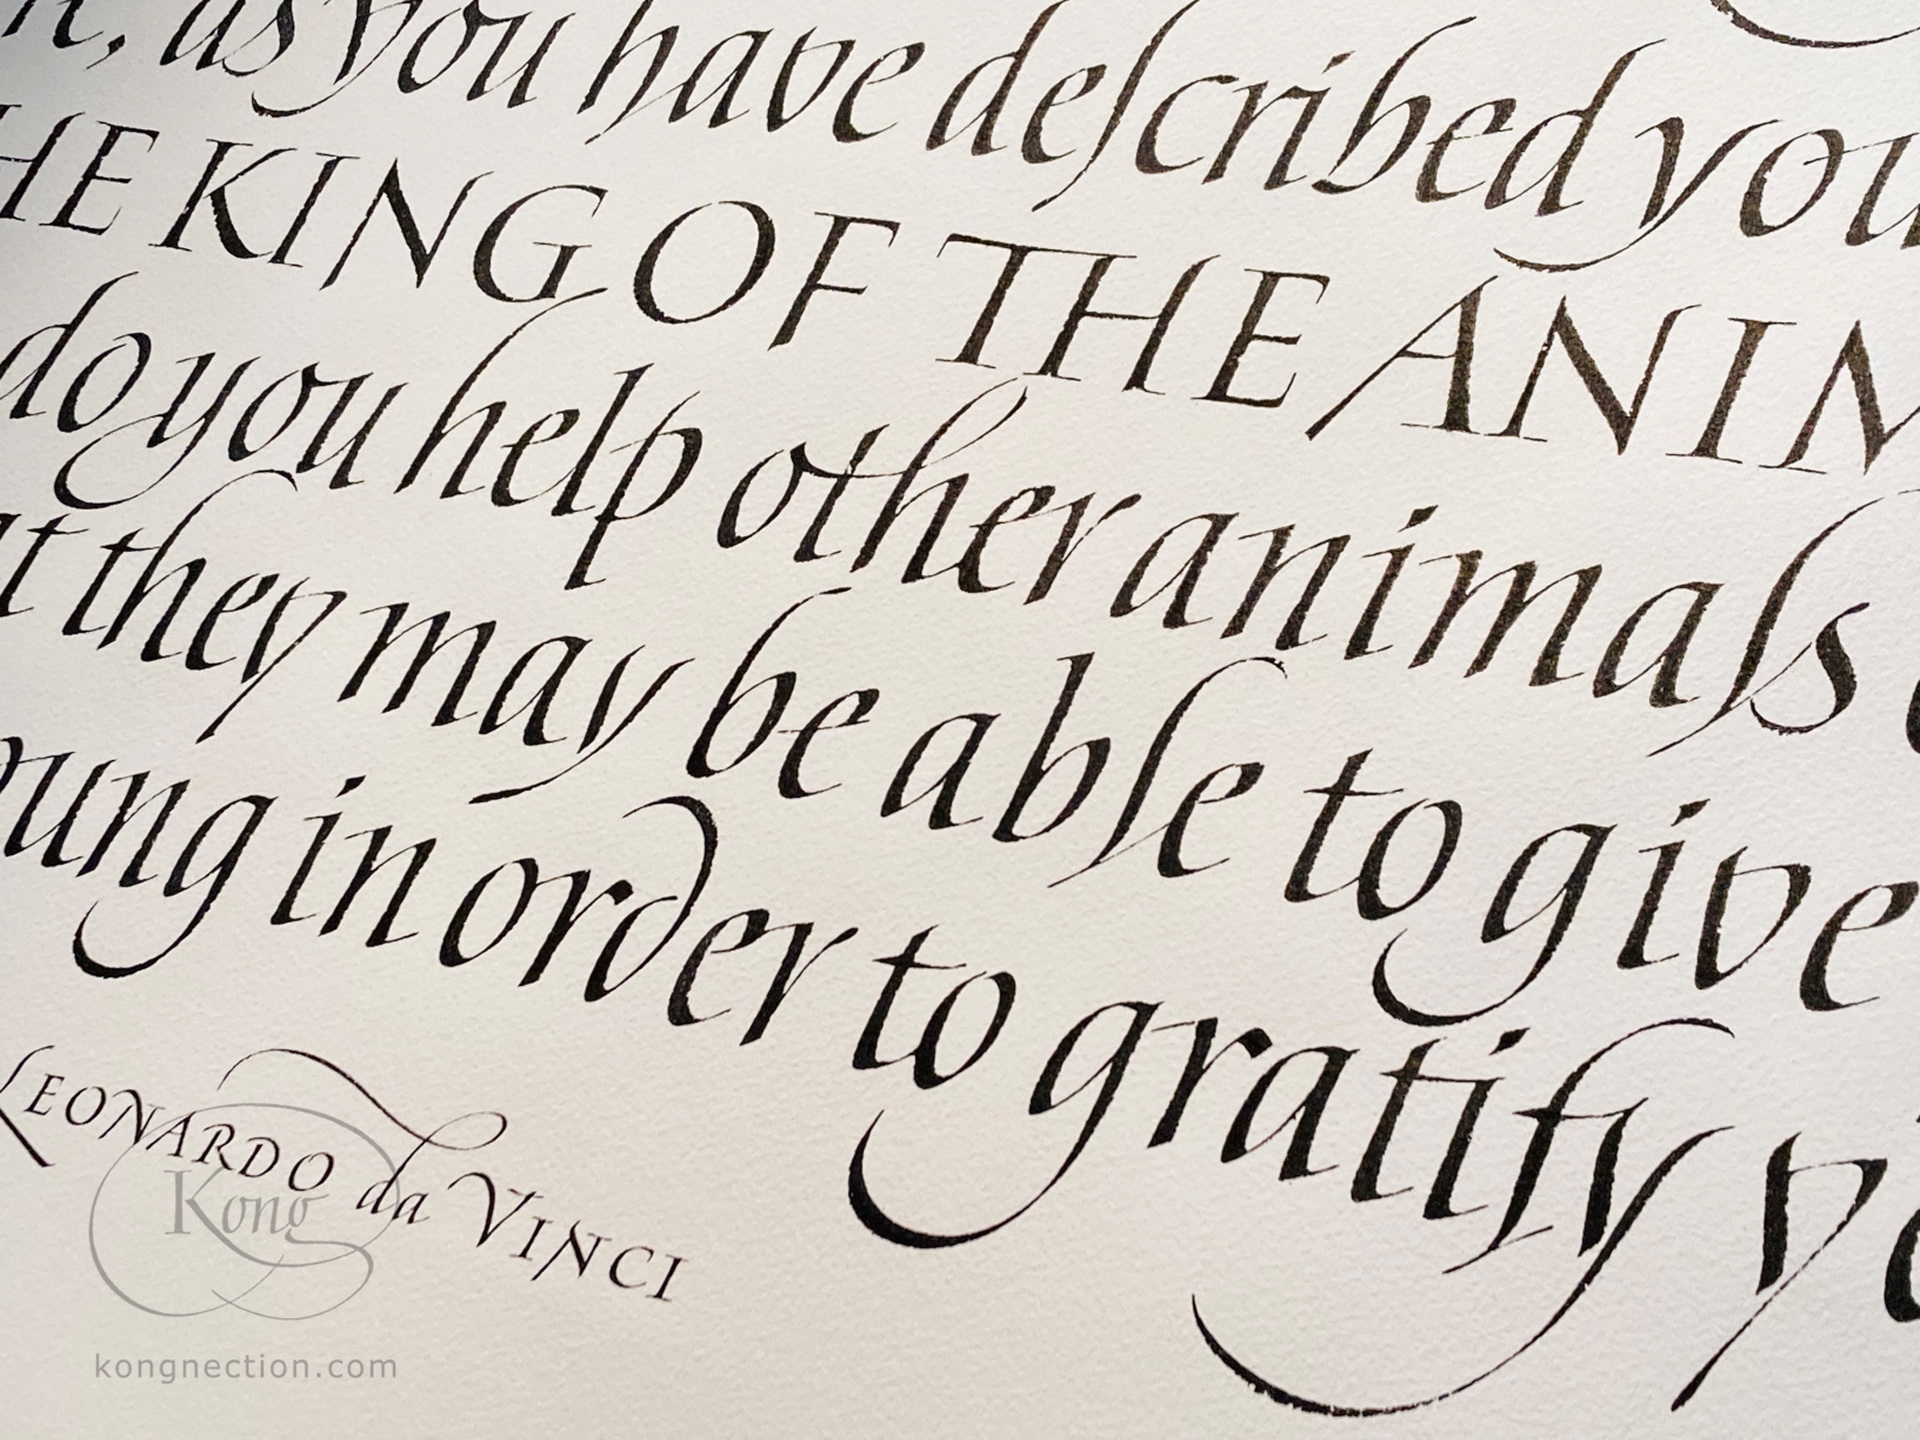 as you have described you
HE KING OF THE ANIM
do you help other animals
they may be able to give
oung in order to gratify
LEONARDO da VINCI
Kong
kongnection.com